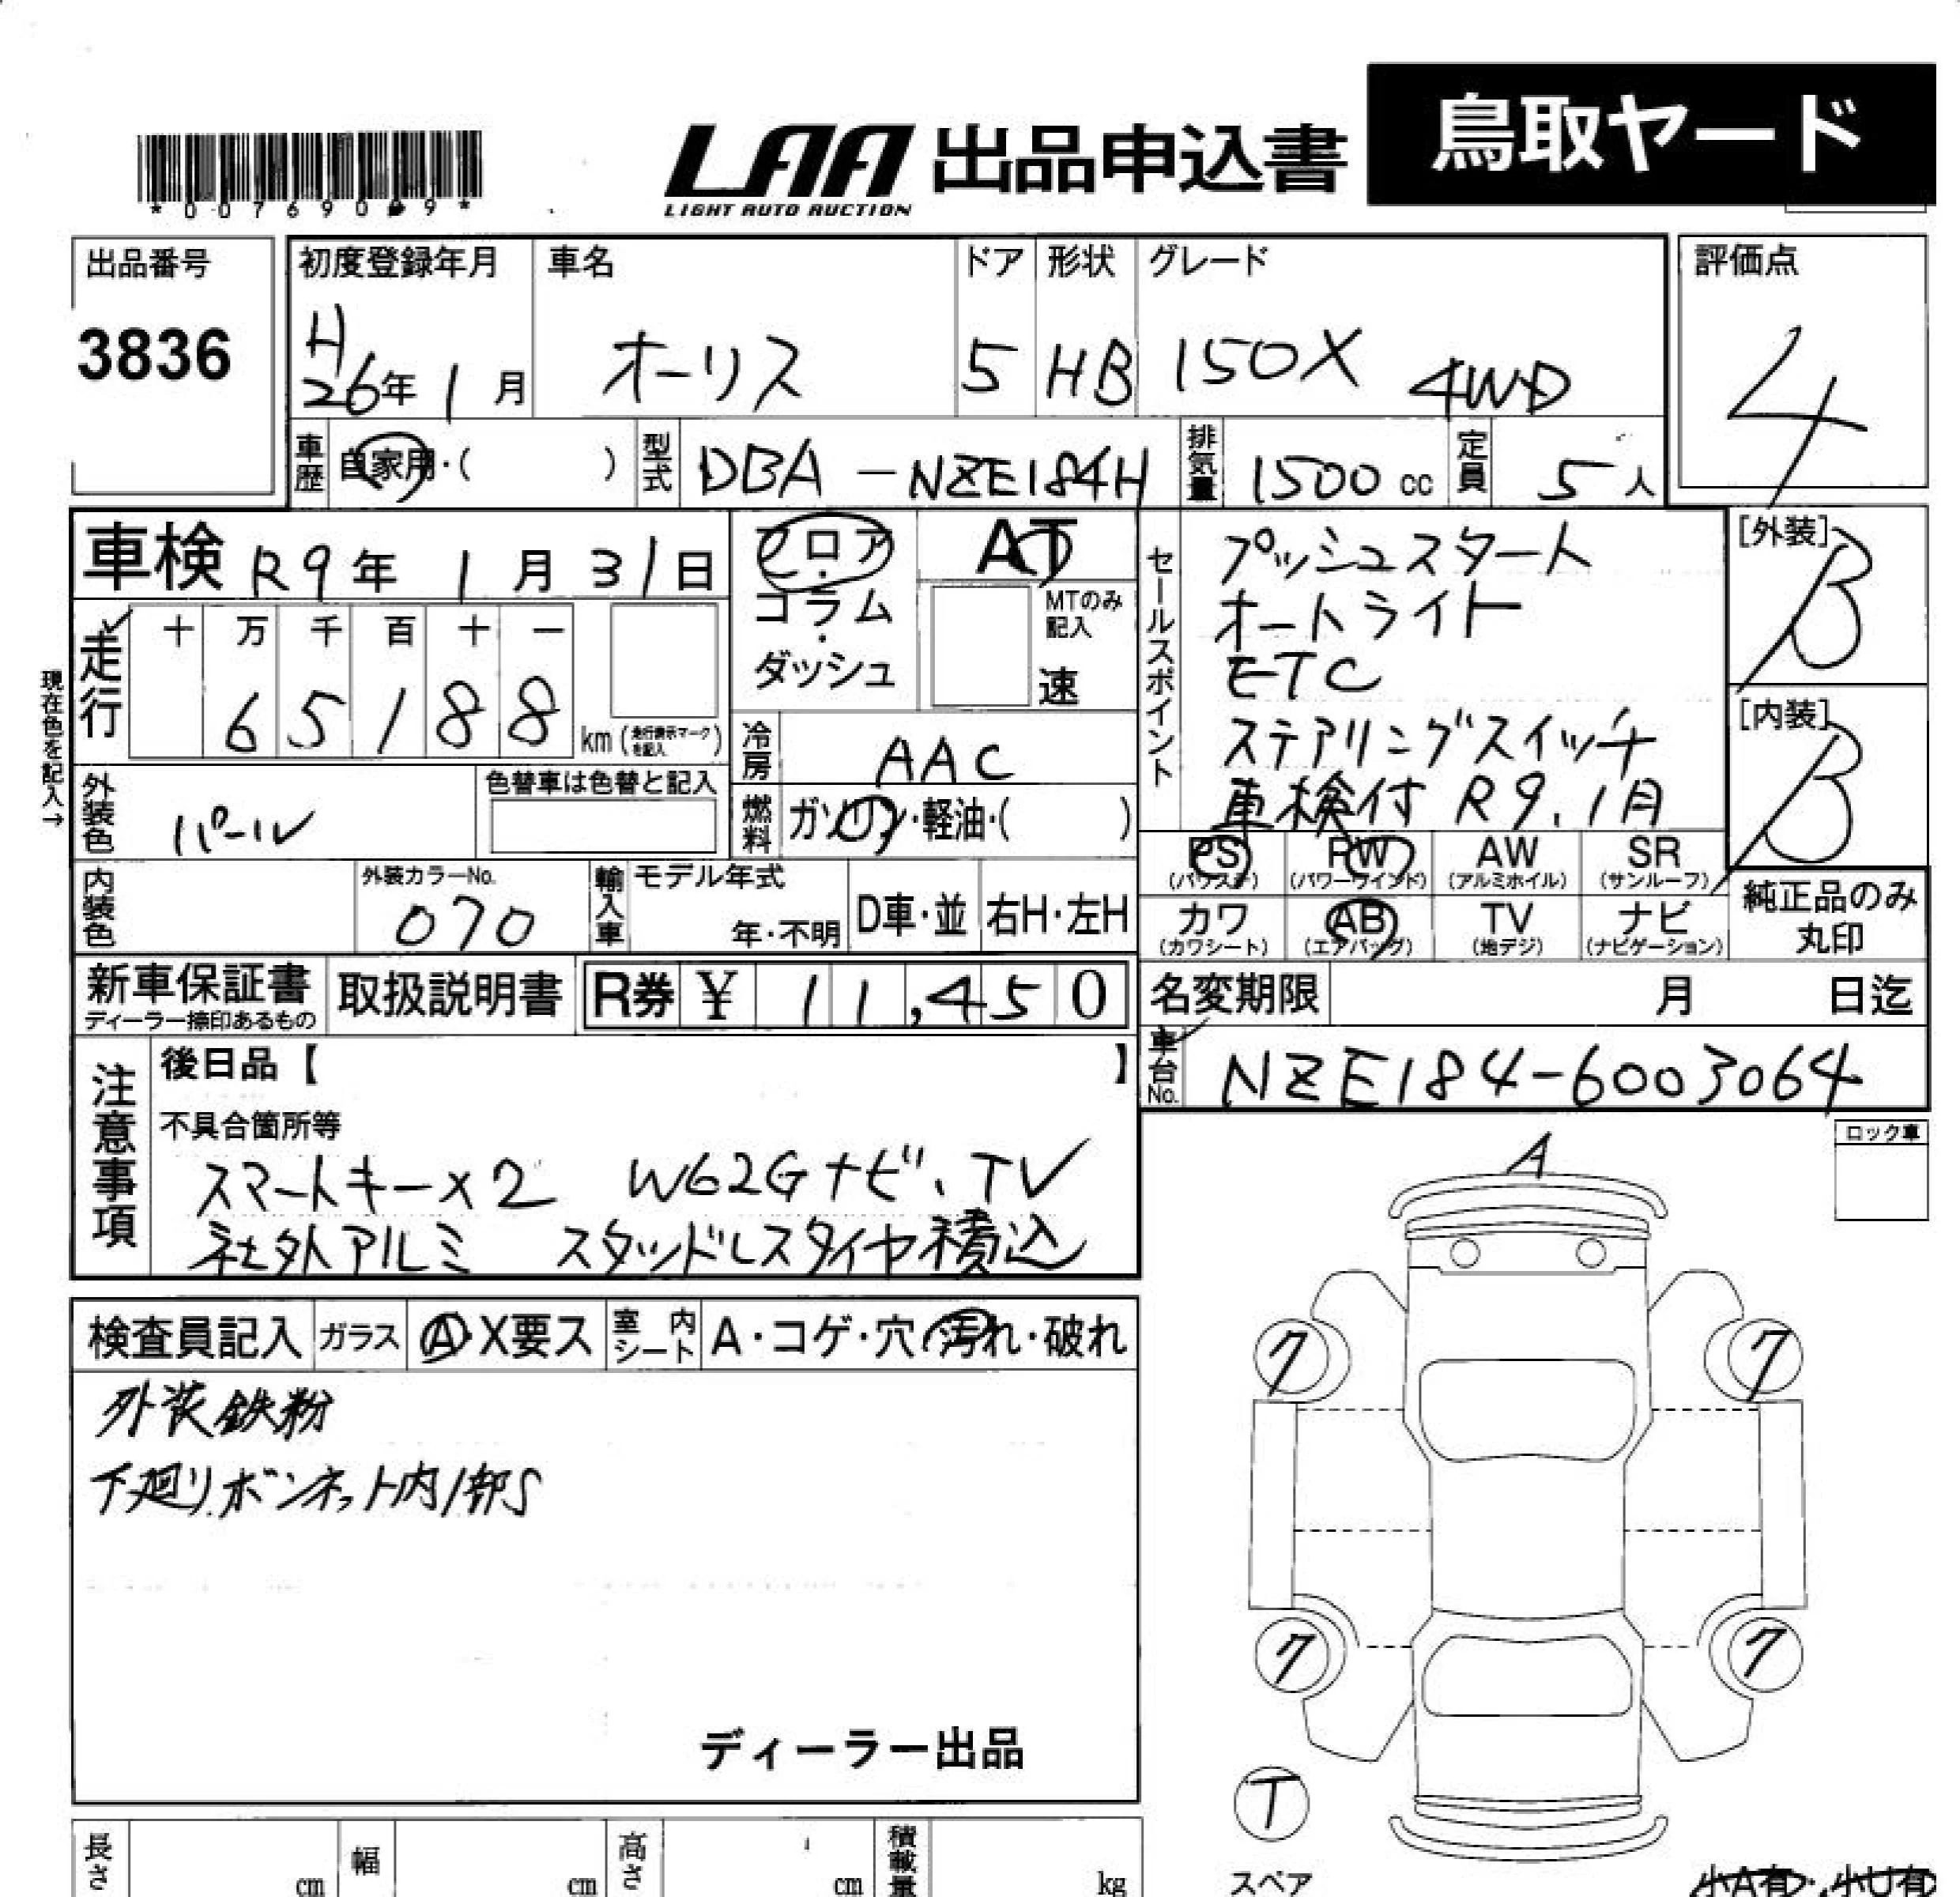 鳥取ヤード
LAA 出品申込書
LIGHT AUTO AUCTION
出品番号
3836
初度登録年月
H
26年1月
車名
オーリス
ドア
5
形状
HB
グレード
150X 4WD
評価点
4
車歴
自家用・( )
型式
DBA-NZE184H
排気量
1500cc
定員
5人
車検 R9年1月31日
フロア・
コラム・
ダッシュ
AT
MTのみ
記入
速
セールスポイント
プッシュスタート
オートライト
ETC
ステアリングスイッチ
車検付 R9.1月
[外装]
B
[内装]
B
走行
十 万 千 百 十 一
6 5 1 8 8
km(走行表示マークを記入)
現在色を記入→
冷房
AAC
外装色
パール
色替車は色替と記入
燃料
ガソリン・軽油・( )
PS
(パワステ)
PW
(パワーウインド)
AW
(アルミホイル)
SR
(サンルーフ)
カワ
(カワシート)
AB
(エアバッグ)
TV
(地デジ)
ナビ
(ナビゲーション)
純正品のみ
丸印
内装色
外装カラーNo.
070
輸入車
モデル年式
年・不明
D車・並
右H・左H
新車保証書
ディーラー捺印あるもの
取扱説明書
R券 ¥ 11,450
名変期限
月 日迄
車台No.
NZE184-6003064
注意事項
後日品【 】
不具合箇所等
スマートキー×2 W62Gナビ、TV
社外アルミ スタッドレスタイヤ積込
ロック車
A
検査員記入
ガラス
A・X要ス
室内シート
A・コゲ・穴・汚れ・破れ
外装鉄粉
下廻り、ボンネット内/部S
ディーラー出品
ク
ク
ク
ク
T
スペア
長さ
cm
幅
cm
高さ
cm
積載量
kg
小A有・小U有